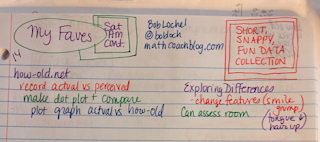 My Faves
Sat
Am
Conf.
Bob Lochel
@bobloch
mathcoachblog.com
SHORT,
SNAPPY,
FUN DATA
COLLECTION
how-old.net
record actual vs perceived
make dot plot + compare
plot graph actual vs how-old
Exploring Differences
- change features (smile
grump
tongue
hair up)
Can assess room